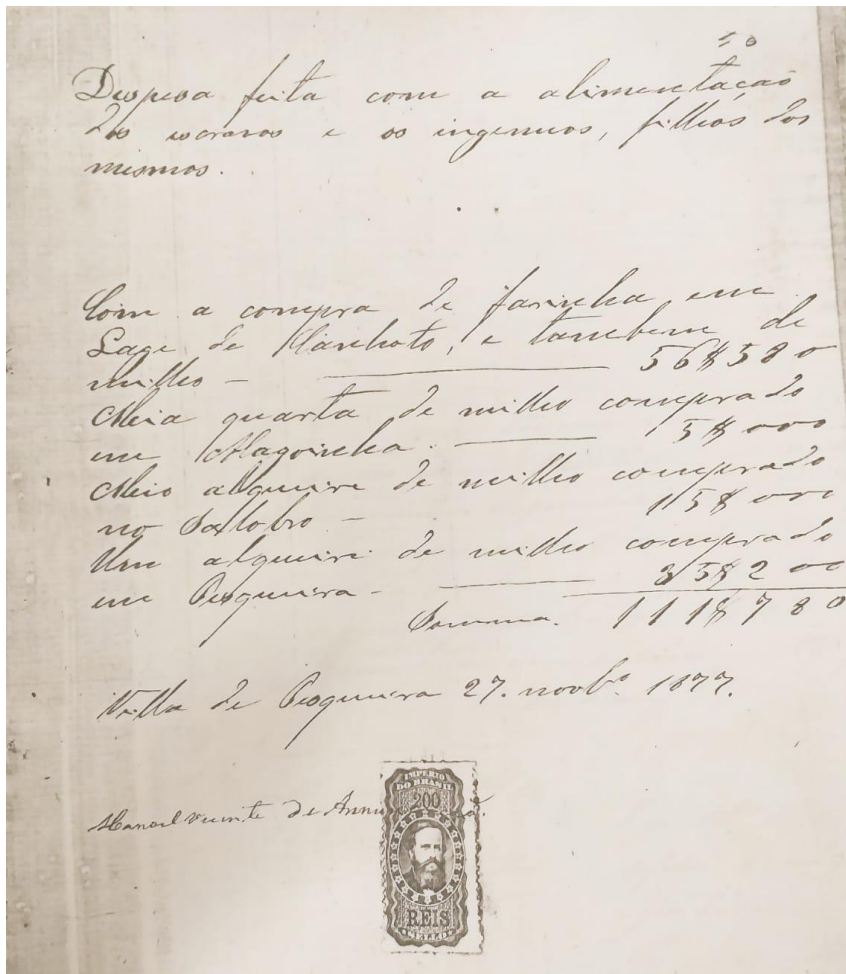 10
Despesa feita com a alimentação
dos escravos e os ingenuos, filhos dos
mesmos.
Com a compra de farinha em
Lage de Canhoto, e tambem de
milho — 56$580
Meia quarta de milho comprado
em Alagoinha. — 5$000
Meio alqueire de milho comprado
no — 15$000
Um alqueire de milho comprado
em Pesqueira — 35$200
Somma. 111$780
Villa de Pesqueira 27. novbº 1877.
Manoel Vicente de
IMPERIO
DO BRASIL
200
REIS
SELLO